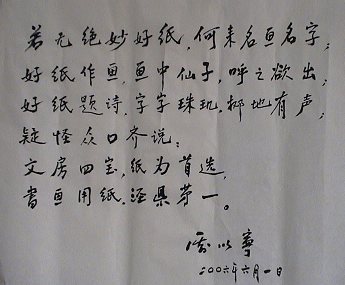 若无绝妙好纸，何来名画名字；
好纸作画，画中仙子，呼之欲出；
好纸题诗，字字珠玑，掷地有声；
疑怪众口齐说：
文房四宝，纸为首选，
书画用纸，泾县第一。
云以宁
二〇〇六年六月一日